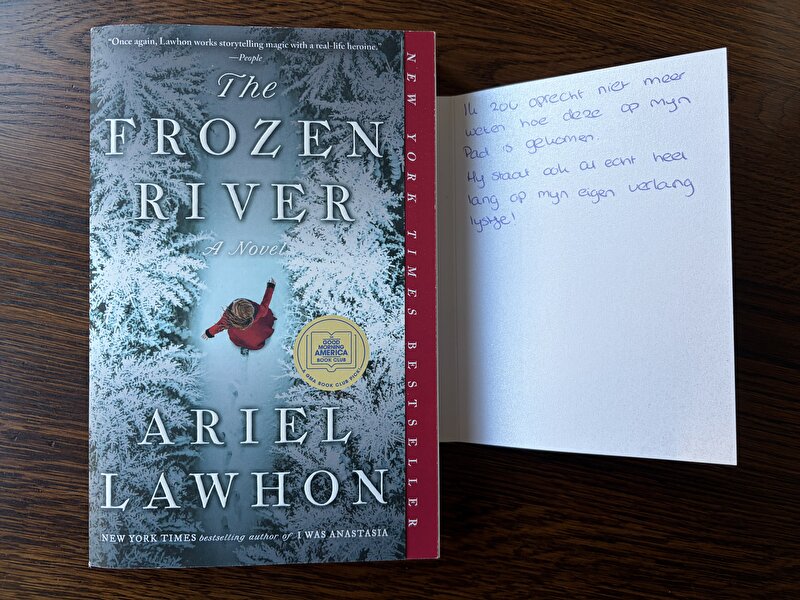 "Once again, Lawhon works storytelling magic with a real-life heroine."
—People
The
FROZEN
RIVER
A Novel
GOOD
MORNING
AMERICA
BOOK CLUB
A GMA BOOK CLUB PICK
ARIEL
LAWHON
NEW YORK TIMES bestselling author of I WAS ANASTASIA
NEW YORK TIMES BESTSELLER
Ik zou oprecht niet meer
weten hoe deze op mijn
Pad is gekomen.
Hij staat ook al echt heel
lang op mijn eigen verlang
lijstje!